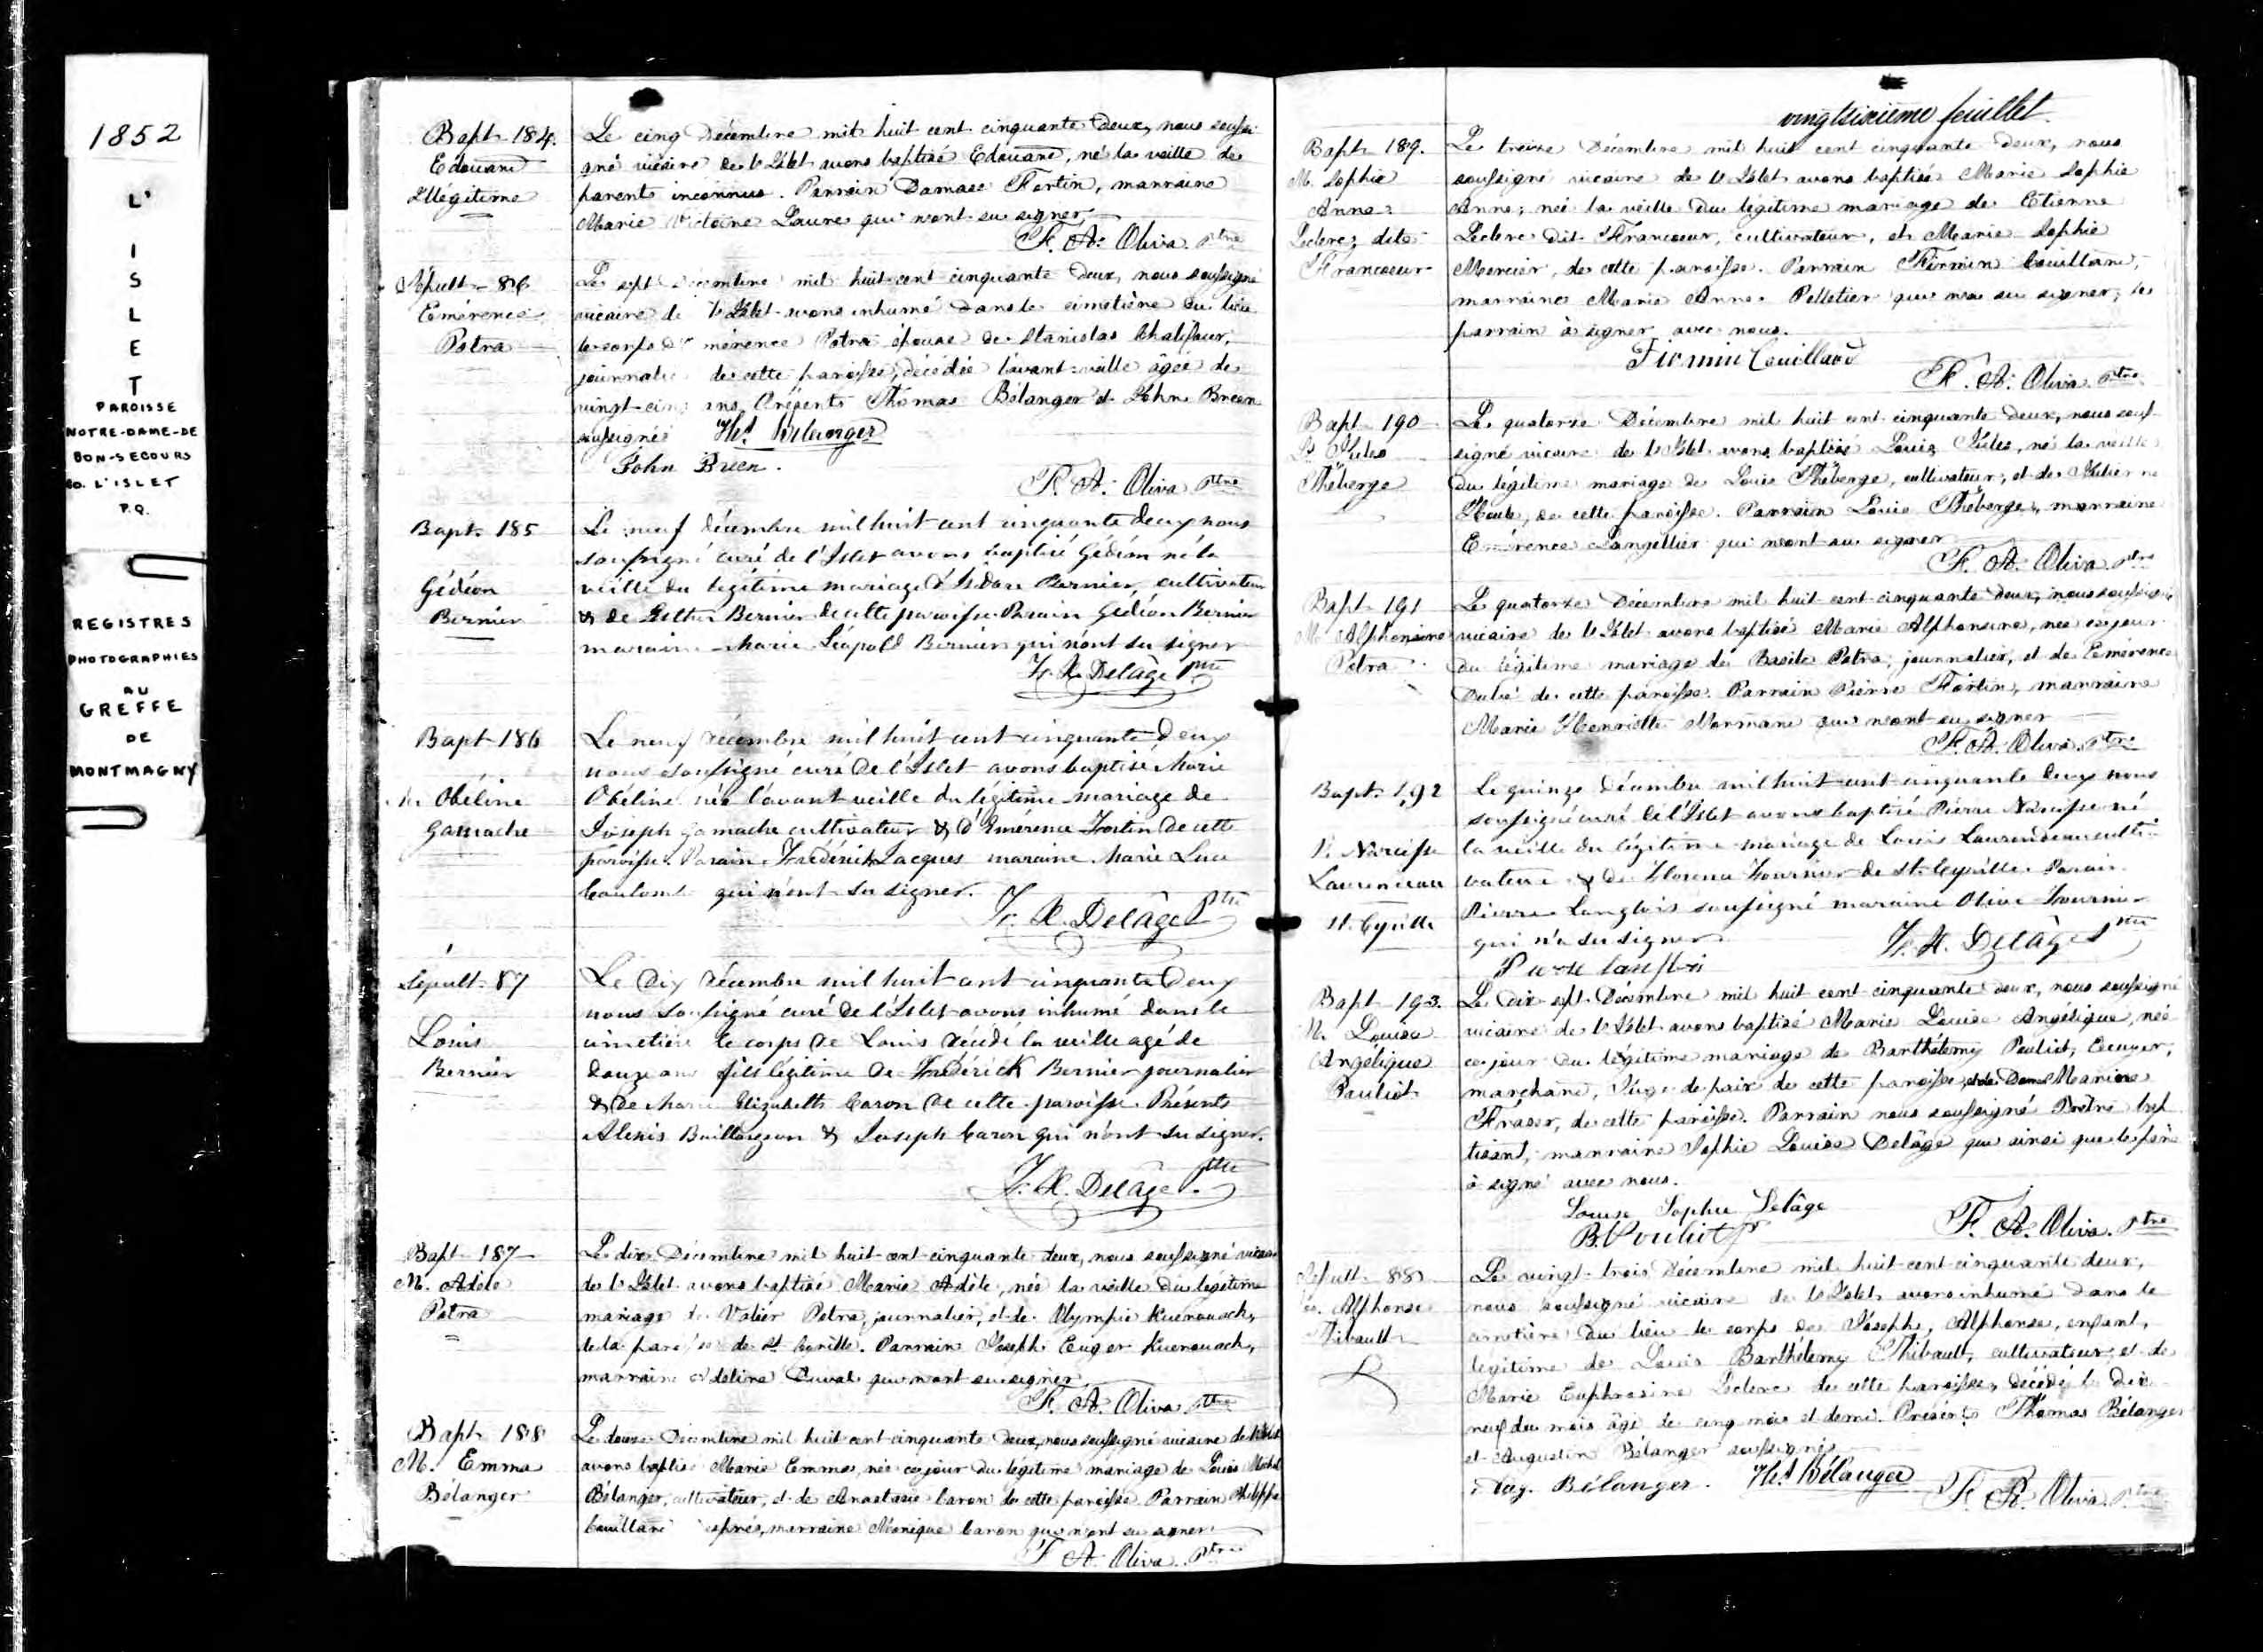 1852
L'
I
S
L
E
T
PAROISSE
NOTRE-DAME-DE
BON-SECOURS
Co. L'ISLET
P.Q.
REGISTRES
PHOTOGRAPHIES
AU
GREFFE
DE
MONTMAGNY
Bapt. 184.
Edouard
Illégitime
Le cinq Décembre mil huit cent cinquante deux, nous soussi-
gné vicaire de l'Islet avons baptisé Edouard, né la veille de
parents inconnus. Parrain Damase Fortin, marraine
Marie Victoire Laure qui n'ont su signer
F. A. Oliva Ptre
Sépult. 86
Emérence
Potra
Le sept Décembre mil huit cent cinquante deux, nous soussigné
vicaire de l'Islet avons inhumé dans le cimetière du lieu
le corps d' mérence Potra épouse de Stanislas Chalifour,
journalier de cette paroisse, décédée l'avant-veille âgée de
vingt-cinq ans. Présents Thomas Bélanger et John Breen
soussignés Ths Bélanger
John Breen.
F. A. Oliva Ptre
Bapt. 185
Gédéon
Bernier
Le neuf décembre mil huit cent cinquante deux nous
soussigné curé de l'Islet avons baptisé Gédéon né la
veille du légitime mariage d'Isidore Bernier, cultivateur
& de Esther Bernier de cette paroisse Parain Gédéon Bernier
maraine Marie Léopold Bernier qui n'ont su signer
F. X. Delâge Ptre
Bapt 186
M. Obéline
Gamache
Le neuf décembre mil huit cent cinquante deux
nous soussigné curé de l'Islet avons baptisé Marie
Obéline née l'avant veille du légitime mariage de
Joseph Gamache cultivateur & d'Emérence Fortin de cette
paroisse. Parain Frédérick Jacques maraine Marie Luce
Coulombe qui n'ont su signer.
F. X. Delâge Ptre
Sépult. 87
Louis
Bernier
Le dix décembre mil huit cent cinquante deux
nous soussigné curé de l'Islet avons inhumé dans le
cimetière le corps de Louis décédé la veille agé de
douze ans fils légitime de Frédérick Bernier journalier
& de Marie Elizabeth Caron de cette paroisse. Présents
Alexis Boillargeon & Joseph Caron qui n'ont su signer.
F. X. Delâge Ptre
Bapt. 187
M. Adèle
Potra
Le dix Décembre mil huit cent cinquante deux, nous soussigné vicaire
de l'Islet avons baptisé Marie Adèle, née la veille du légitime
mariage de Valier Potra, journalier, et de Olympie Kuerouack,
de la paroisse de St Cyrille. Parrain Joseph Euger Kuerouack,
marraine Adeline Duval qui n'ont su signer
F. A. Oliva Ptre
Bapt. 188
M. Emma
Bélanger
Le douze Décembre mil huit cent cinquante deux, nous soussigné vicaire de l'Islet
avons baptisé Marie Emma, née ce jour du légitime mariage de Louis Michel
Bélanger, cultivateur, et de Anastasie Caron de cette paroisse. Parrain Philippe
Couillard marraine Monique Caron qui n'ont su signer
F. A. Oliva. Ptre
vingtsixième feuillet.
Bapt. 189.
M. Sophie
Anne
Leclerc, dite
Francoeur
Le treize Décembre mil huit cent cinquante deux, nous
soussigné vicaire de l'Islet avons baptisé Marie Sophie
Anne, née la veille du légitime mariage de Etienne
Leclerc dit Francoeur, cultivateur, et Marie Sophie
Mercier, de cette paroisse. Parrain Firmin Couillard,
marraine Marie Anne Pelletier qui n'a su signer, le
parrain à signer avec nous.
Firmin Couillard
F. A. Oliva. Ptre
Bapt. 190
Ls Jules
Théberge
Le quatorze Décembre mil huit cent cinquante deux, nous sous-
signé vicaire de l'Islet avons baptisé Louis Jules, né la veille
du légitime mariage de Louis Théberge, cultivateur, et de
de cette paroisse. Parrain Louis Théberge, marraine
Emérence Langellier qui n'ont su signer
F. A. Oliva Ptre
Bapt. 191
M. Alphonsine
Potra
Le quatorze Décembre mil huit cent cinquante deux, nous soussigné
vicaire de l'Islet avons baptisé Marie Alphonsine, née ce jour
du légitime mariage de Basile Potra, journalier, et de Emérence
Dubé de cette paroisse. Parrain Pierre Fortin, marraine
Marie Henriette Normand qui n'ont su signer
F. A. Oliva Ptre
Bapt. 192
P. Narcisse
Laurendeau
St. Cyrille
Le quinze Décembre mil huit cent cinquante deux nous
soussigné curé de l'Islet avons baptisé Pierre Narcisse né
la veille du légitime mariage de Louis Laurendeau culti-
vateur & de Florence Fournier de St. Cyrille. Parain
Pierre Langlois soussigné maraine Olive Fournier
qui n'a su signer.
F. X. Delâge Ptre
Pierre Langlois
Bapt. 193.
M. Louise
Angélique
Pouliot
Le dix sept Décembre mil huit cent cinquante deux, nous soussigné
vicaire de l'Islet avons baptisé Marie Louise Angélique, née
ce jour du légitime mariage de Barthélemy Pouliot, Ecuyer,
marchand, Juge de paix de cette paroisse, et de Dame Marine
Fraser, de cette paroisse. Parrain nous soussigné Prêtre bap-
tisant, marraine Sophie Louise Delâge qui ainsi que le père
à signé avec nous.
Louise Sophie Delâge
B. Pouliot
F. A. Oliva. Ptre
Sépult. 88
Jo. Alphonse
Thibault
Le vingt-trois Décembre mil huit cent cinquante deux,
nous soussigné vicaire de l'Islet avons inhumé dans le
cimetière du lieu le corps de Joseph, Alphonse, enfant,
légitime de Louis Barthélemy Thibault, cultivateur, et de
Marie Euphrosine Leclerc de cette paroisse, décédé le dix-
neuf du mois âgé de cinq mois et demi. Présents Thomas Bélanger
et Augustin Bélanger soussignés
Aug. Bélanger. Ths Bélanger
F. A. Oliva Ptre